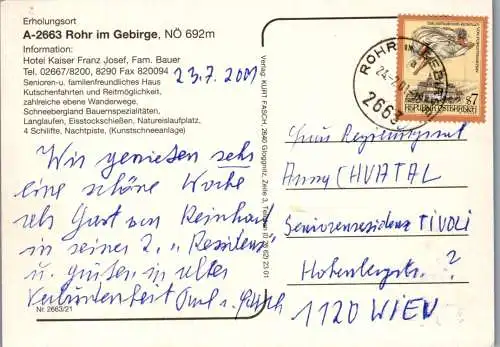 Erholungsort
A-2663 Rohr im Gebirge, NÖ 692m
Information:
Hotel Kaiser Franz Josef, Fam. Bauer
Tel. 02667/8200, 8290 Fax 820094
Senioren- u. familienfreundliches Haus
Kutschenfahrten und Reitmöglichkeit,
zahlreiche ebene Wanderwege,
Schneebergland Bauernspezialitäten,
Langlaufen, Eisstockschießen, Natureislaufplatz,
4 Schilifte, Nachtpiste, (Kunstschneeanlage)
23.7.2001
Wir genießen sehr
eine schöne Woche
als Gast von Reinhard
in seiner 2. "Residenz
u. grüßen in alter
Verbundenheit
Nr. 2663/21
Verlag KURT FASCH, 2640 Gloggnitz, Zeile 3,
ROHR IM GEBIRGE
2663
7
REPUBLIK ÖSTERREICH
Frau
Anny CHVATAL
Seniorenresidenz TIVOLI
Hohenbergstr. ?
1120 WIEN